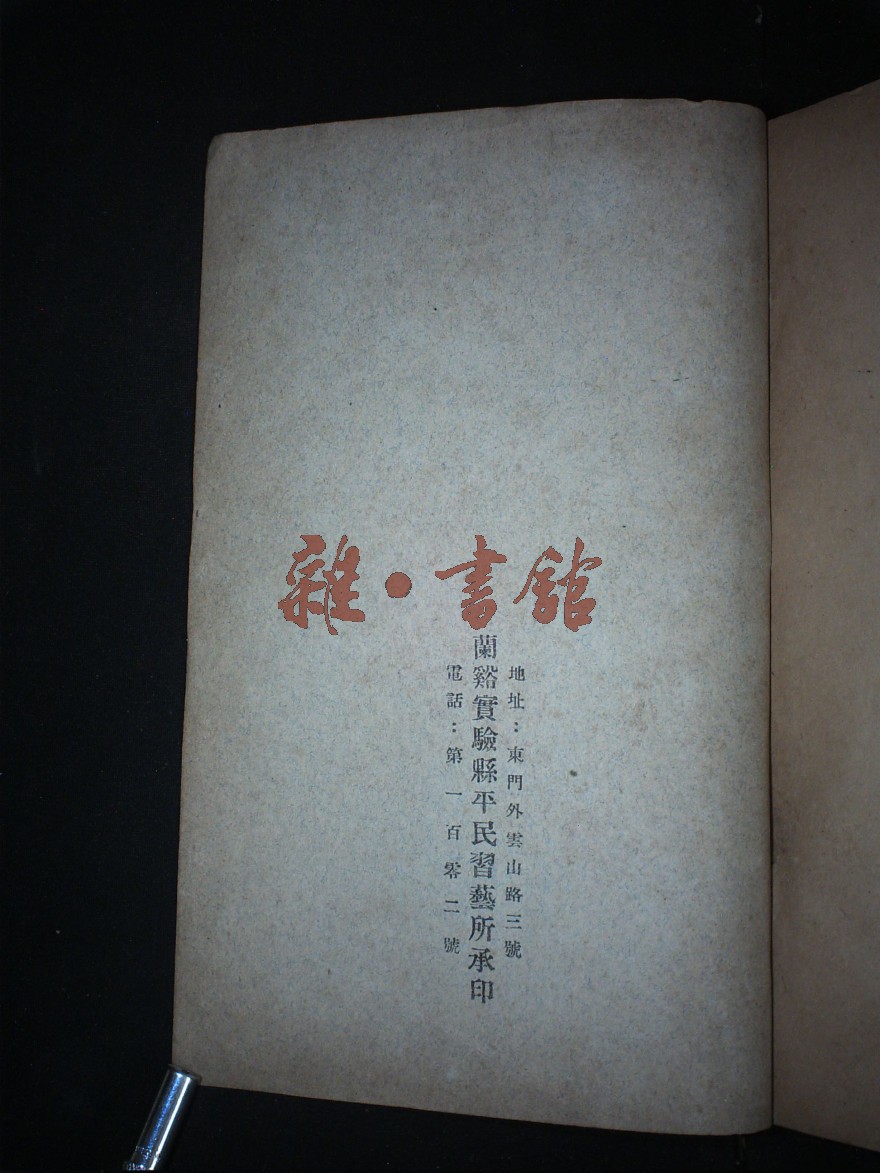 雜·書館
地址：東門外雲山路三號
蘭谿實驗縣平民習藝所承印
電話：第一百零二號